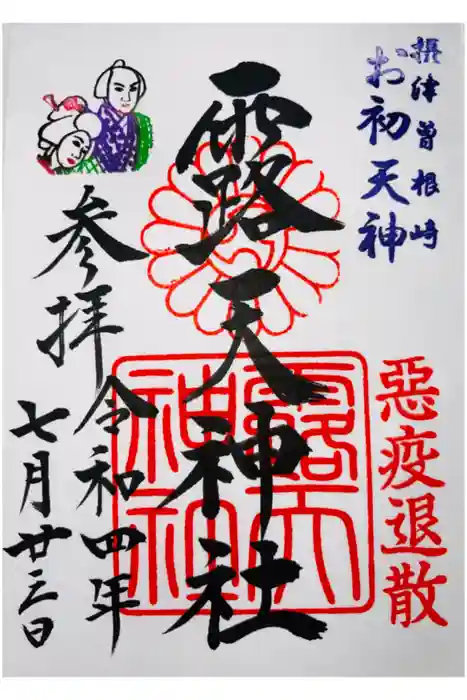 摂津曽根崎
お初天神
惡疫退散
露天神社
参拝
令和四年
七月廿三日
露天
神社